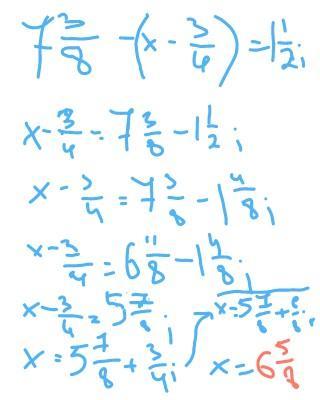 7 3/8 - (x - 3/4) = 1 1/2;
x - 3/4 = 7 3/8 - 1 1/2;
x - 3/4 = 7 3/8 - 1 4/8;
x - 3/4 = 6 11/8 - 1 4/8;
x - 3/4 = 5 7/8;
x = 5 7/8 + 3/4;
x = 5 7/8 + 6/8;
x = 6 5/8